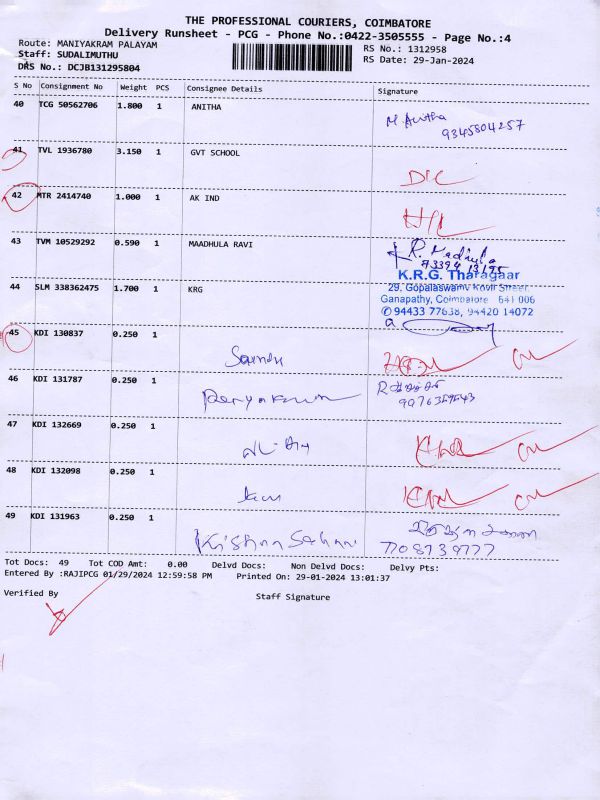 THE PROFESSIONAL COURIERS, COIMBATORE
Delivery Runsheet - PCG - Phone No.:0422-3505555 - Page No.:4
Route: MANIYAKRAM PALAYAM
RS No.: 1312958
Staff: SUDALIMUTHU
RS Date: 29-Jan-2024
DRS No.: DCJB131295804
S No Consignment No Weight PCS Consignee Details Signature
40 TCG 50562706 1.800 1 ANITHA
M. Anitha
9345804257
41 TVL 1936780 3.150 1 GVT SCHOOL
D/C
42 MTR 2414740 1.000 1 AK IND
43 TVM 10529292 0.590 1 MAADHULA RAVI
R. Madhula
44 SLM 338362475 1.700 1 KRG
K.R.G. Tharagaar
29, Gopalaswamy Kovil Street,
Ganapathy, Coimbatore 641 006
✆ 94433 77638, 94420 14072
45 KDI 130837 0.250 1
46 KDI 131787 0.250 1
47 KDI 132669 0.250 1
48 KDI 132098 0.250 1
49 KDI 131963 0.250 1
Krishna
Tot Docs: 49 Tot COD Amt: 0.00 Delvd Docs: Non Delvd Docs: Delvy Pts:
Entered By :RAJIPCG 01/29/2024 12:59:58 PM Printed On: 29-01-2024 13:01:37
Verified By
Staff Signature